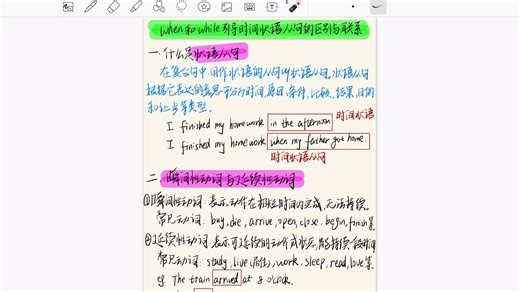 when和while引导时间状语从句的区别与联系
一.什么是状语从句
在复合句中,用作状语的从句叫状语从句,状语从句
根据它表达的意思可分为时间,原因,条件,比较,结果,目的
和让步等类型.
时间状语
I finished my homework in the afternoon
I finished my homework when my father got home.
时间状语从句
二.瞬间性动词与延续性动词
①瞬间性动词:表示动作在相短时间内完成,无法持续.
常见动词:buy,die,arrive,open,close.begin,finish等.
②延续性动词:表示可延续的动作或状态,能持续一段时间
常见动词:study,live(居住),work,sleep,read,love等.
eg. The train arrived at 8 o'clock.